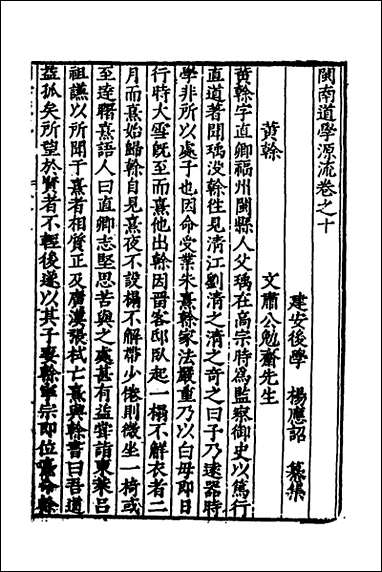 閩南道學源流卷之十
建安後學 楊應詔 纂集
黃榦 文肅公勉齋先生
黃榦字直卿福州閩縣人父瑀在高宗時為監察御史以篤行
直道著聞瑀沒榦往見清江劉清之清之奇之曰子乃遠器時
學非所以處子也因命受業朱熹榦家法嚴重乃以白母即日
行時大雪既至而熹他出榦因留客邸臥起一榻不解衣者二
月而熹始歸榦自見熹夜不設榻不解帶少倦則微坐一椅或
至達曙熹語人曰直卿志堅思苦與之處甚有益嘗詣東萊呂
祖謙以所聞于熹者相質正及廣漢張栻亡熹與榦書曰吾道
益孤矣所望於賢者不輕後遂以其子妻榦寧宗即位熹命榦